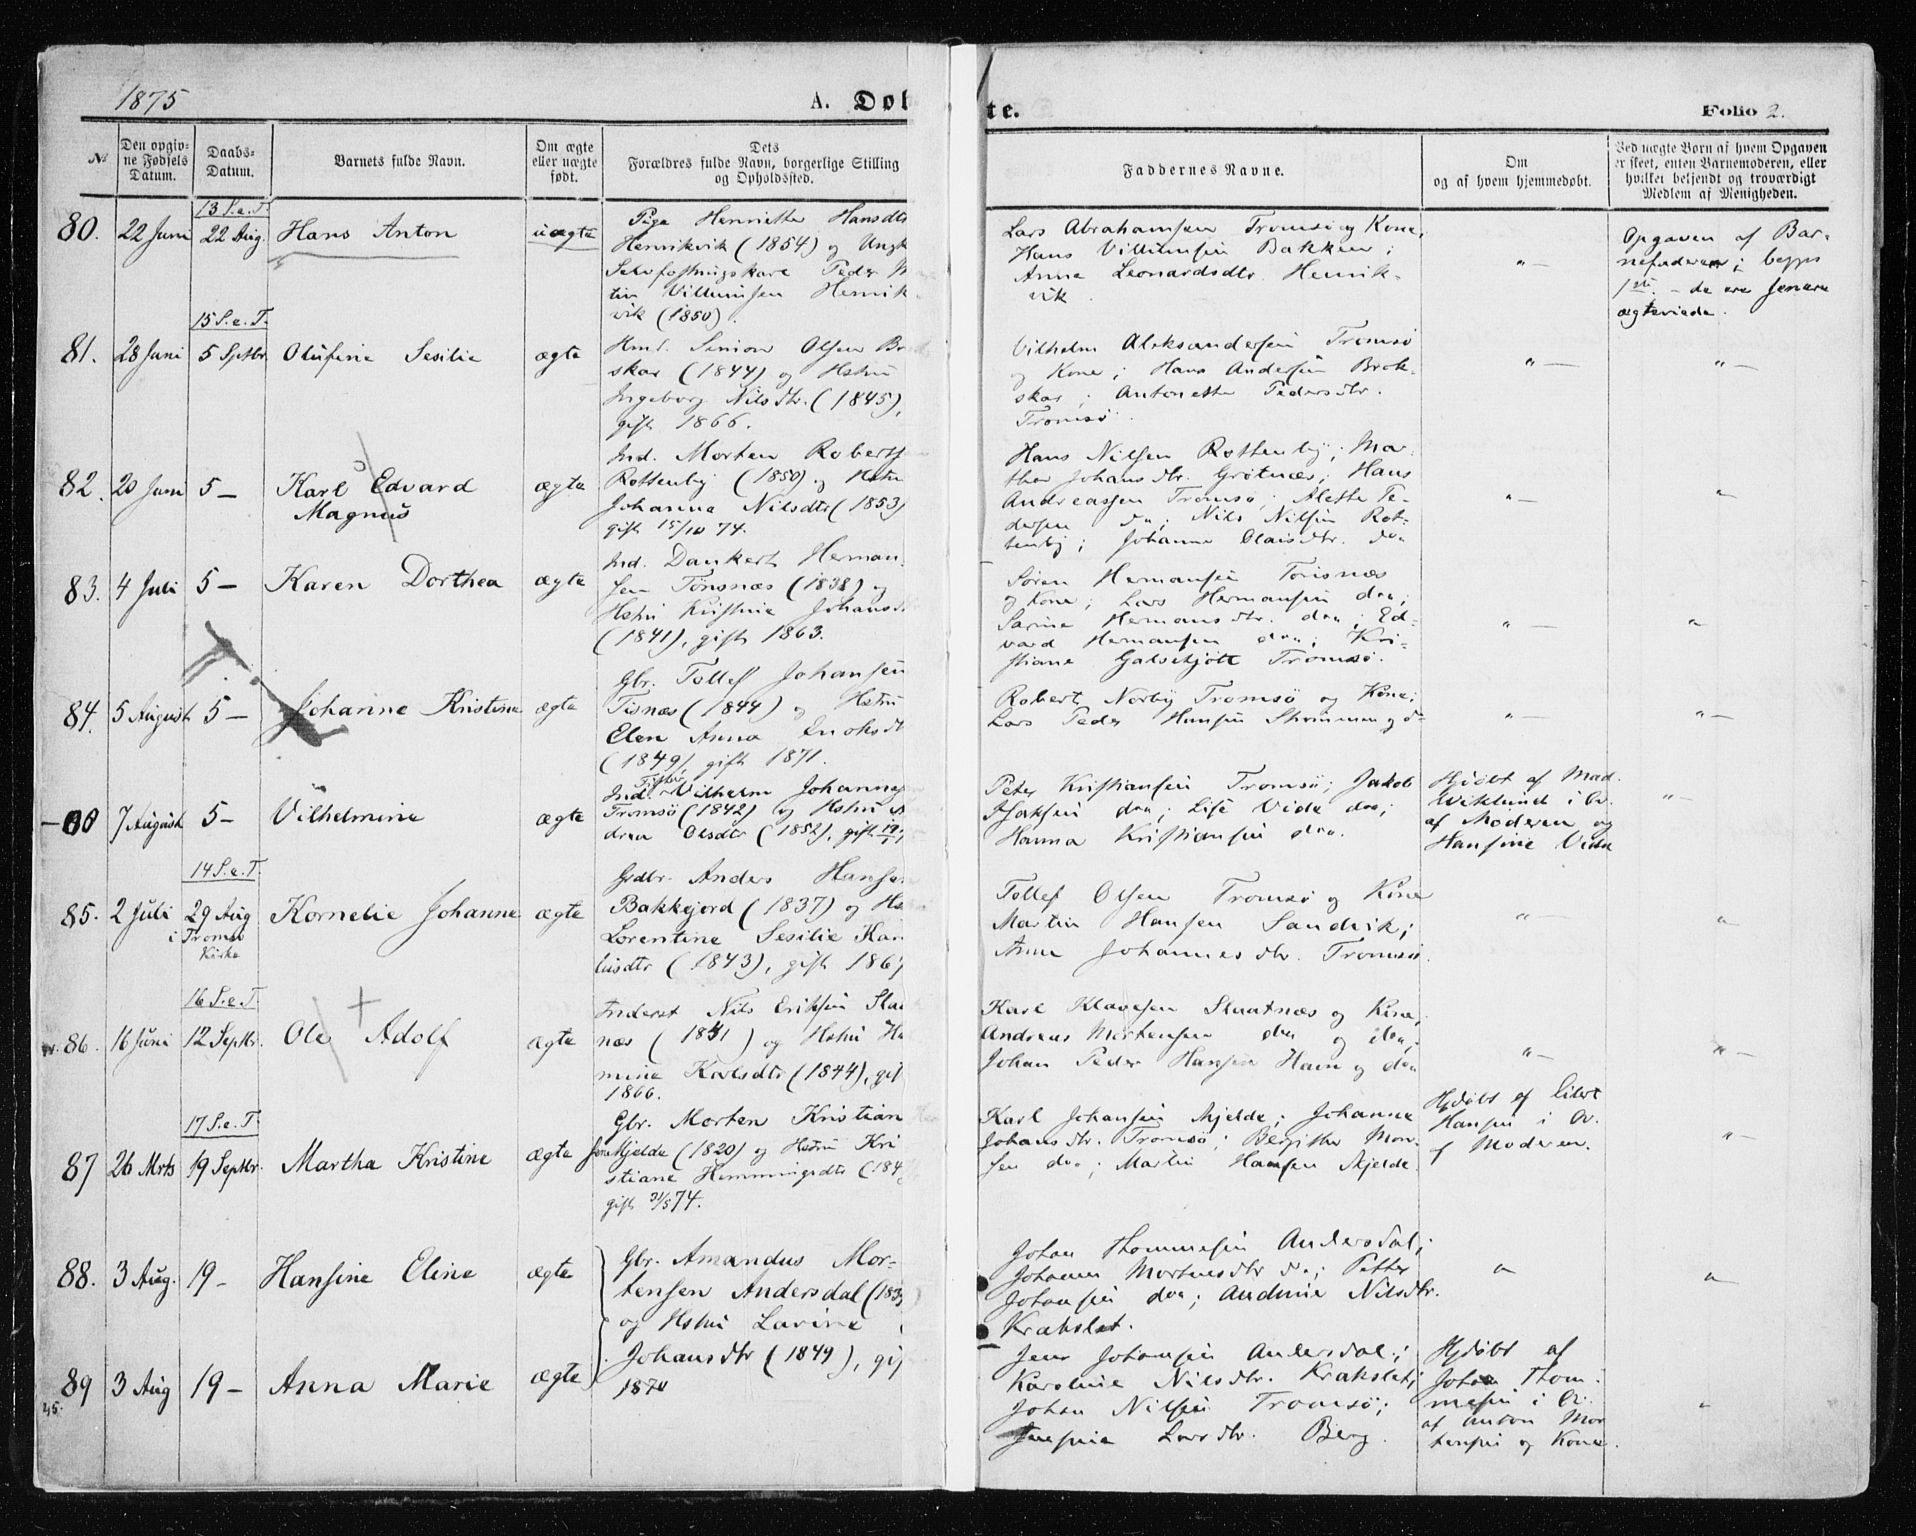 1875
A. Døb
te.
Folio 2.
№
Den opgiv-
ne Fødsels
Datum.
Daabs-
Datum.
Barnets fulde Navn.
Om ægte
eller uægte
født.
Dets
Forældres fulde Navn, borgerlige Stilling
og Opholdssted.
Faddernes Navne.
Om
og af hvem hjemmedøbt.
Ved uægte Børn af hvem Opgaven
er skeet, enten Barnemoderen, eller
hvilket bekjendt og troværdigt
Medlem af Menigheden.
13 S.e.T.
80. 22 Juni 22 Aug. Hans Anton uægte
Pige Henriette Hansdtr
Henrikvik (1854) og Ungk
Peder
tin Villumsen Henrik-
vik (1850).
Lars Abrahamsen Tromsø og Kone;
Hans Villumsen Bakken;
Anna Leonardsdtr Henrik-
vik.
" —
Opgaven af Bar-
nefaderen; begges
1ste. – de ere senere
ægteviede.
15 S.e.T.
81. 28 Juni 5 Septbr Olufine Sesilie ægte
Hmd. Simon Olsen Br
skar (1844) og Hstru
Ingeborg Nilsdtr. (1845),
gift 1866.
Vilhelm Aleksandersen Tromsø
og Kone; Hans Andersen Brok-
skar; Antonette Pedersdtr.
Tromsø.
" —
" —
82. 20 Juni 5 — Karl Edvard
Magnus
ægte
Ind. Morten Roberts
Rottenby (1850) og Hstru
Johanna Nilsdtr (1853)
gift 15/10 74.
Hans Nilsen Rottenby; Mar-
tha Johansdtr. Grøtnæs; Hans
Andreassen Tromsø; Alette Pe-
dersen do; Nils Nilsen Rot-
tenby; Johanna Olaisdtr. do
" —
"
83. 4 Juli 5 — Karen Dorthea ægte
Ind. Dankert Herman-
sen Tønsnæs (1838) og
Hstru Kristine Johansdt
(1841), gift 1863.
Søren Hermansen Tønsnæs
og Kone; Lars Hermansen do;
Sarine Hermansdtr. do; Ed-
vard Hermansen do; Kri-
stiane Galschjøtt Tromsø.
" —
"
84. 5 August 5 — Johanne Kristine ægte
Gbr. Tollef Johansen
Tisnæs (1844) og Hstru
Elen Anna Enoksdt
(1849), gift 1871.
Robert Norby Tromsø og Kone;
Lars Peder Hansen Strommen og do
" —
" —
7 August 5 — Vilhelmine ægte
Ind. Vilhelm Johannes
Tromsø (1842) og Hstru
drea Olsdtr (1852), gift
Peter Kristiansen Tromsø; Jakob
do; Lise Vide do;
Hanna Kristiansen do.
Hjdøbt af Mad.
Wiklund i Ov.
af Moderen og
Hansine Vide
" —
14 S.e.T.
85. 2 Juli 29 Aug
i Tromsø
Kirke
Kornelie Johanne ægte
Grdbr. Anders Hansen
Bakkejord (1837) og H
Lorentine Sesilie Kar
(1843), gift 186
Tollef Olsen Tromsø og Kone
Martin Hansen Sandvik;
Anne Johannesdtr. Tromsø.
" —
"
16 S.e.T.
86. 16 Juni 12 Septbr. Ole Adolf ægte
Inderst Nils Eriksen Slaa
næs (1841) og Hstru H
mine Karlsdtr (1844), gif
1866.
Karl Klavesen Slaatnæs og Kone,
Andreas Mortensen do og do;
Johan Peder Hansen Havn og do
" —
" —
17 S.e.T.
87 26 Mrts 19 Septbr. Martha Kristine ægte
Gbr. Morten Kristian
sen Mjelde (1820) og Hstru Kri
stiane Hemmingsdtr (184
gift 31/5 74.
Karl Johansen Mjelde; Johanne
Johansdtr. Tromsø; Bergitte Mon-
sen do; Martin Hansen Mjelde.
Hjdøbt af
Hansen i Ov.
af Moderen.
" —
88. 3 Aug. 19 — Hansine Eline ægte
Gbr. Amandus Mor-
tensen Andersdal (183
og Hstru Lavine
Johansdtr (1849), gif
1870
Johan Thommesen Andersdal;
Johanna Mortensdtr do; Petter
Johansen do; Andrine Nilsdtr.
Krakslet.
"
"
89 3 Aug 19 — Anna Marie ægte
45.
Jens Johansen Andersdal;
Karoline Nilsdtr. Krakslet;
Johan Nilsen Tromsø;
Larsdtr. Berg.
Hjdøbt af
Johan Thom-
mesen i Ov.
af Anton Mor
tensen og Kone.
"